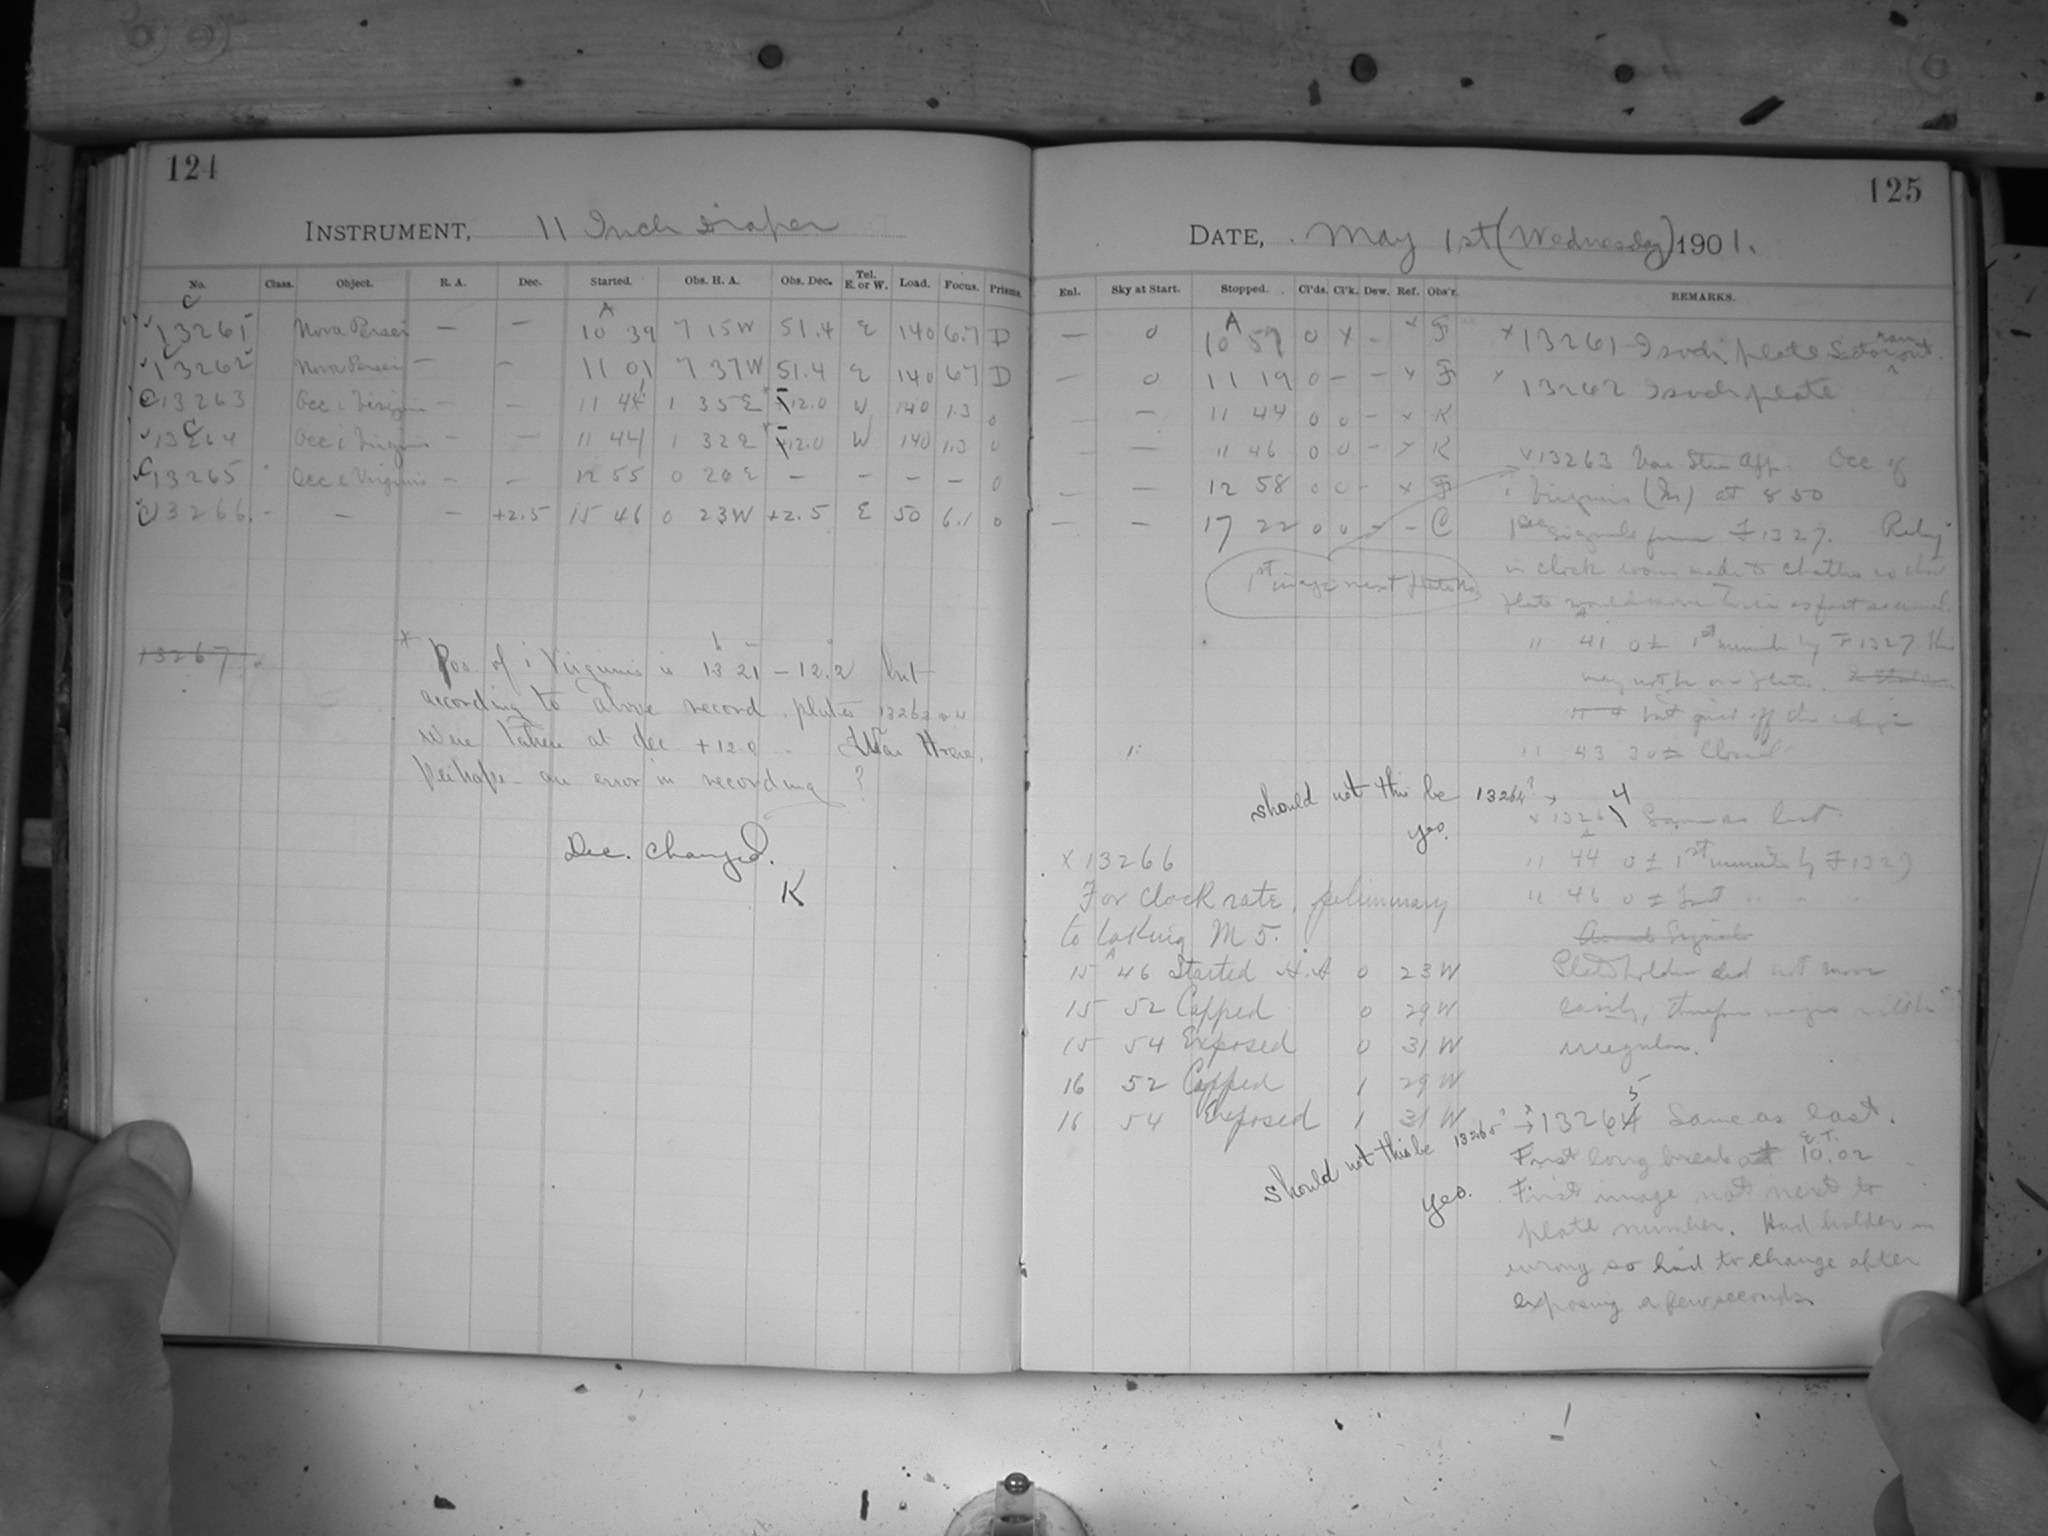 124
INSTRUMENT, 11 Inch Draper
No. Class. Object. R. A. Dec. Started. Obs. H. A. Obs. Dec. Tel. E. or W. Load. Focus. Prisms.
13261 Nova Persei — — 10 39 7 15 W 51.4 E 140 6.7 D
13262 Nova Persei — — 11 01 7 37 W 51.4 E 140 6.7 D
13263 Occ i Virginis — — 11 41 1 35 E 12.0 W 140 1.3 0
13264 Occ i Virginis — — 11 44 1 32 E 12.0 W 140 1.3 0
13265 Occ Virginis — — 12 55 0 20 E — — — — 0
13266 — — — +2.5 15 46 0 23 W +2.5 E 50 6.1 0
13267
* Pos. of i Virginis is 13 21 – 12.2 but
according to above record, plates 13263
were taken at dec +12.0
perhaps an error in recording?
Dec. changed.
K
125
DATE, May 1st (Wednesday) 1901.
Enl. Sky at Start. Stopped. Cl'ds. Cl'k. Dew. Ref. Obs'r. REMARKS.
— 0 10 59 0 x – x F
— 0 11 19 0 – – x F
— — 11 44 0 0 – x K
— — 11 46 0 0 – x K
— — 12 58 0 0 – x F
— — 17 22 0 0 – – C
x 13261 Isoch plate
x 13262 Isoch plate
13263 Occ of
i Virginis at 8 50
signals from F 1327. Relay
in clock room made to chatter so that
plate would move twice as fast as usual.
1st image next plate No.
11 41 0 ± 1st minute by F 1327
may not be on plate.
11 43 30 ± Closed
should not this be 13264?
yes.
x 13264 Same as last
11 44 0 ± 1st minute by F 1327
11 46 0 ± last " "
Plateholder did not move
easily, therefore images will be
irregular.
x 13266
For clock rate, preliminary
to taking M 5.
15 46 Started H.A 0 23 W
15 52 Capped 0 29 W
15 54 Exposed 0 31 W
16 52 Capped 1 29 W
16 54 Exposed 1 31 W
should not this be 13265?
yes.
x 13265 Same as last.
First long break at 10.02 E.T.
First image not next to
plate number. Had holder in
wrong so had to change after
exposing a few seconds.